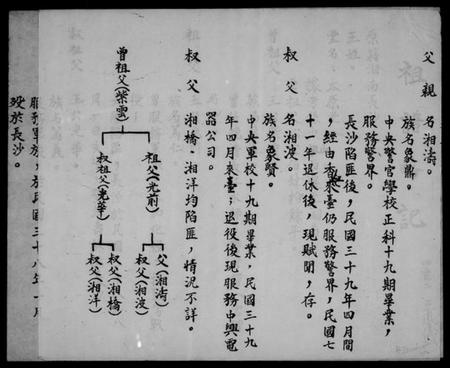 父親 名湘濤。
族名象鼎。
中央警官學校正科十九期畢業，
服務警界。
長沙陷匪後，民國三十九年四月間
，經由香港來臺仍服務警界，民國七
十一年退休後，現賦閒，存。
叔父 名湘波。
族名象賢。
中央軍校十九期畢業，民國三十九
年四月來臺；退役後現服務中興電
器公司。
叔父 湘橋、湘洋均陷匪，情況不詳。
曾祖父(紫雲)
祖父(光前)
叔祖父(光華)
父(湘濤)
叔父(湘波)
叔父(湘橋)
叔父(湘洋)
歿於長沙。